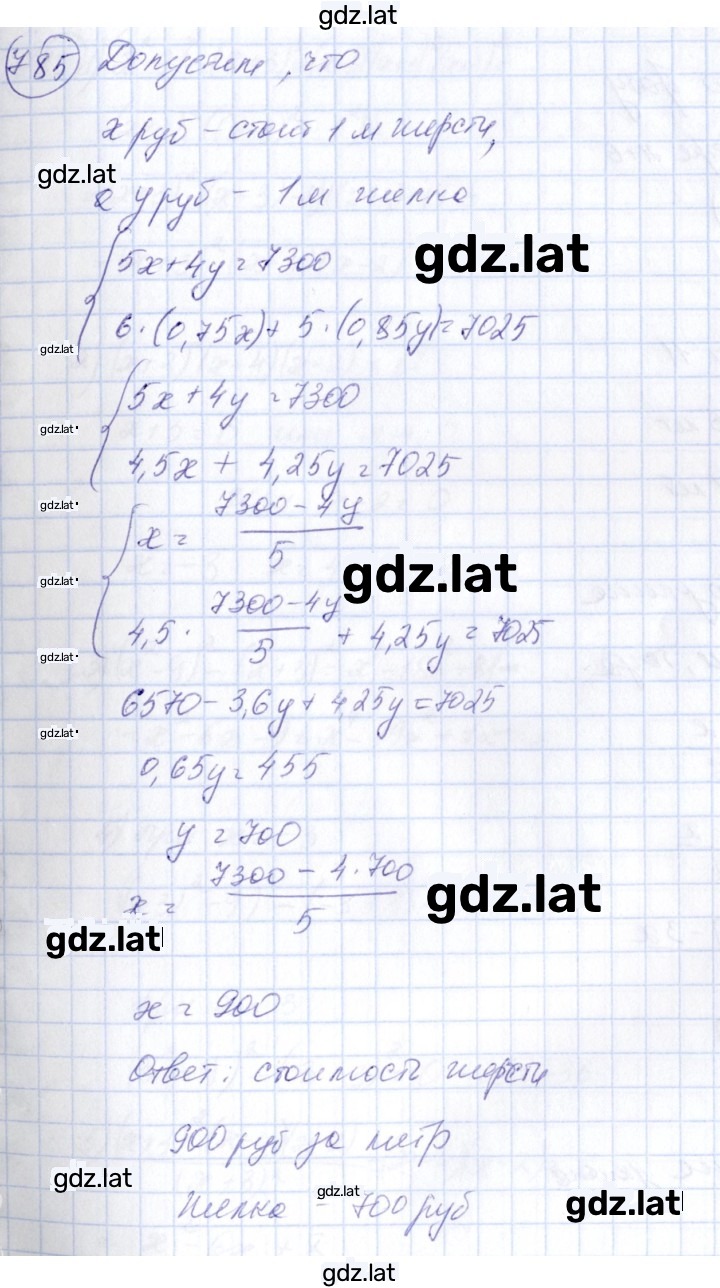 gdz.lat
785 Допустим, что
x руб - стоит 1 м шерсти,
gdz.lat
а y руб - 1 м шелка
gdz.lat
5x+4y=7300
6·(0,75x)+5·(0,85y)=7025
gdz.lat
5x+4y=7300
gdz.lat
4,5x + 4,25y=7025
gdz.lat
x = (7300-4y)/5
gdz.lat
gdz.lat
4,5· (7300-4y)/5 + 4,25y=7025
gdz.lat
6570-3,6y+4,25y=7025
gdz.lat
0,65y=455
y=700
x = (7300-4·700)/5
gdz.lat
gdz.lat
x=900
Ответ: стоимость шерсти
900 руб за метр
gdz.lat
шелка - 700 руб
gdz.lat
gdz.lat
gdz.lat